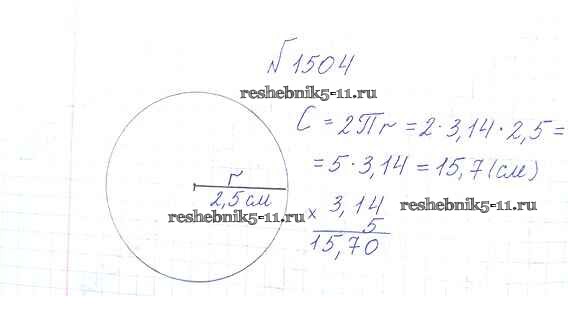 N 1504
reshebnik5-11.ru
C = 2Пr = 2·3,14·2,5 =
= 5·3,14 = 15,7 (см)
r
2,5 см
reshebnik5-11.ru
× 3,14
5
15,70
reshebnik5-11.ru